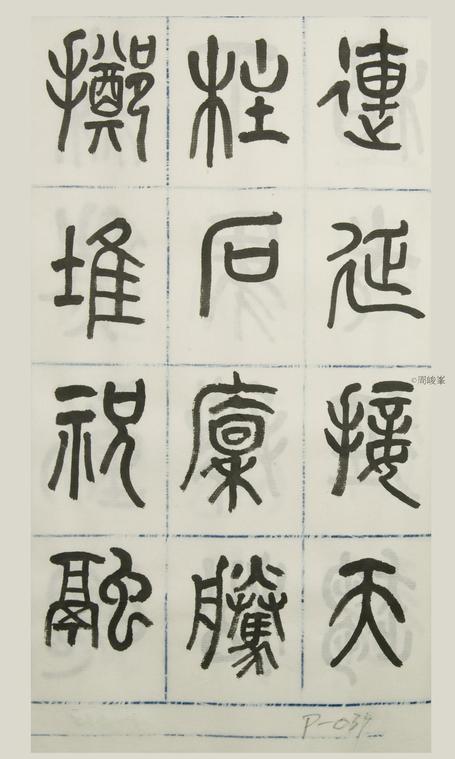 連延接天
柱石廩騰
擲堆祝融
©周峻峯
P-039